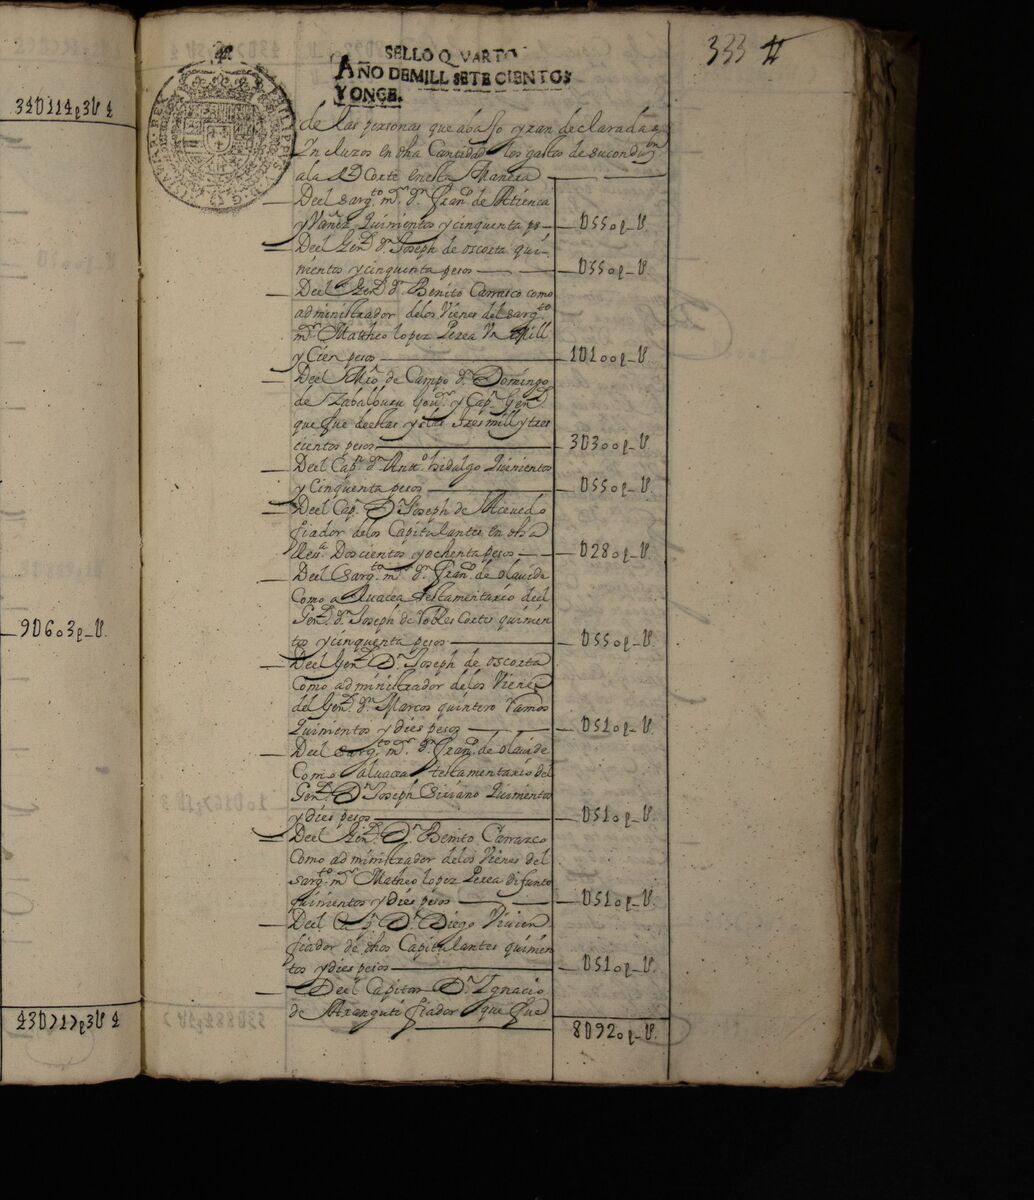 34U114p3U4
9U603p_U.
43U717p3U4
333
SELLO QVARTO
AÑO DE MILL SETECIENTOS
Y ONCE.
PHILIPPVS V D G
HISPANIAR REX
de las personas que abajo yran declaradas
Yncluzos en dha Cantidad los gastos de su condn
a la Rl Corte en esta Manera
Del sargto mr dn Frano de Atienca
y Vañez Quinientos y cinquenta ps U550p_U.
Deel Genl dn Joseph de oscorta quinientos y cinquenta pesos U550p_U.
Deel Genl dn Benito Carrasco como
administrador de los Vienes del sargto
mr Matheo lopez Perea Vn Mill
y Cien pesos 1U100p_U.
Deel Mro de Campo dn Domingo
de Zabalburu Gour y Capn Genl
que fue de estas yslas tres mill y trescientos pesos 3U300p_U.
Deel Capn dn Anto hidalgo Quinientos
y Cinquenta pesos U550p_U.
Deel Capn Dn Joseph de Acevedo
fiador de los Capitulantes en dha
Docientos y ochenta pesos U280p_U.
Deel sargto mr dn Frano de olauide
Como aluacea testamentario del
Genl dn Joseph de Robles Cortes quinientos y cinquenta pesos U550p_U.
Deel Genl Dn Joseph de oscorta
Como administrador de los Vienes
del Genl dn Marcos quintero Ramos
Quinientos y dies pesos U510p_U.
Deel sargto mr dn Frano de olauide
Como aluacea testamentario del
Genl Dn Joseph Quinientos
y dies pesos U510p_U.
Deel Genl Dn Benito Carrasco
Como administrador de los Vienes del
sargto mr Matheo lopez Perea difunto
quinientos y dies pesos U510p_U.
Deel Capn Dn Diego Vivien
fiador de dhos Capitulantes quinientos y dies pesos U510p_U.
Deel Capitan Dn Ignacio
de Aranguti fiador que fue
8U920p_U.